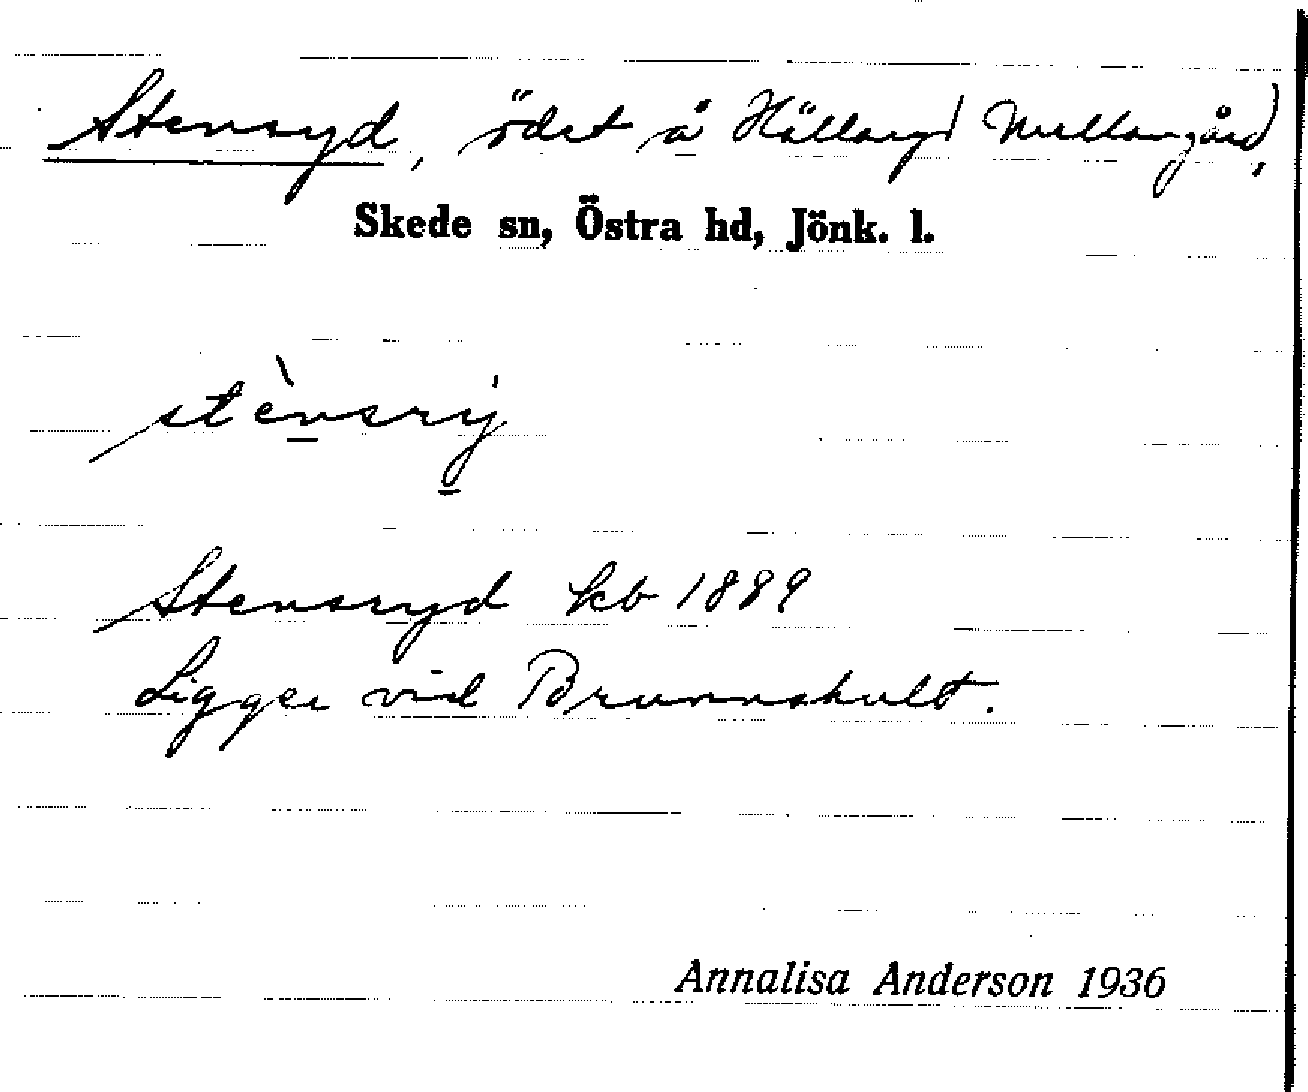 Stensryd, ödet å Hällaryd Mellangård,
Skede sn, Östra hd, Jönk. l.
stènsry
Stensryd kb 1889
Ligger vid Brunnshult.
Annalisa Anderson 1936